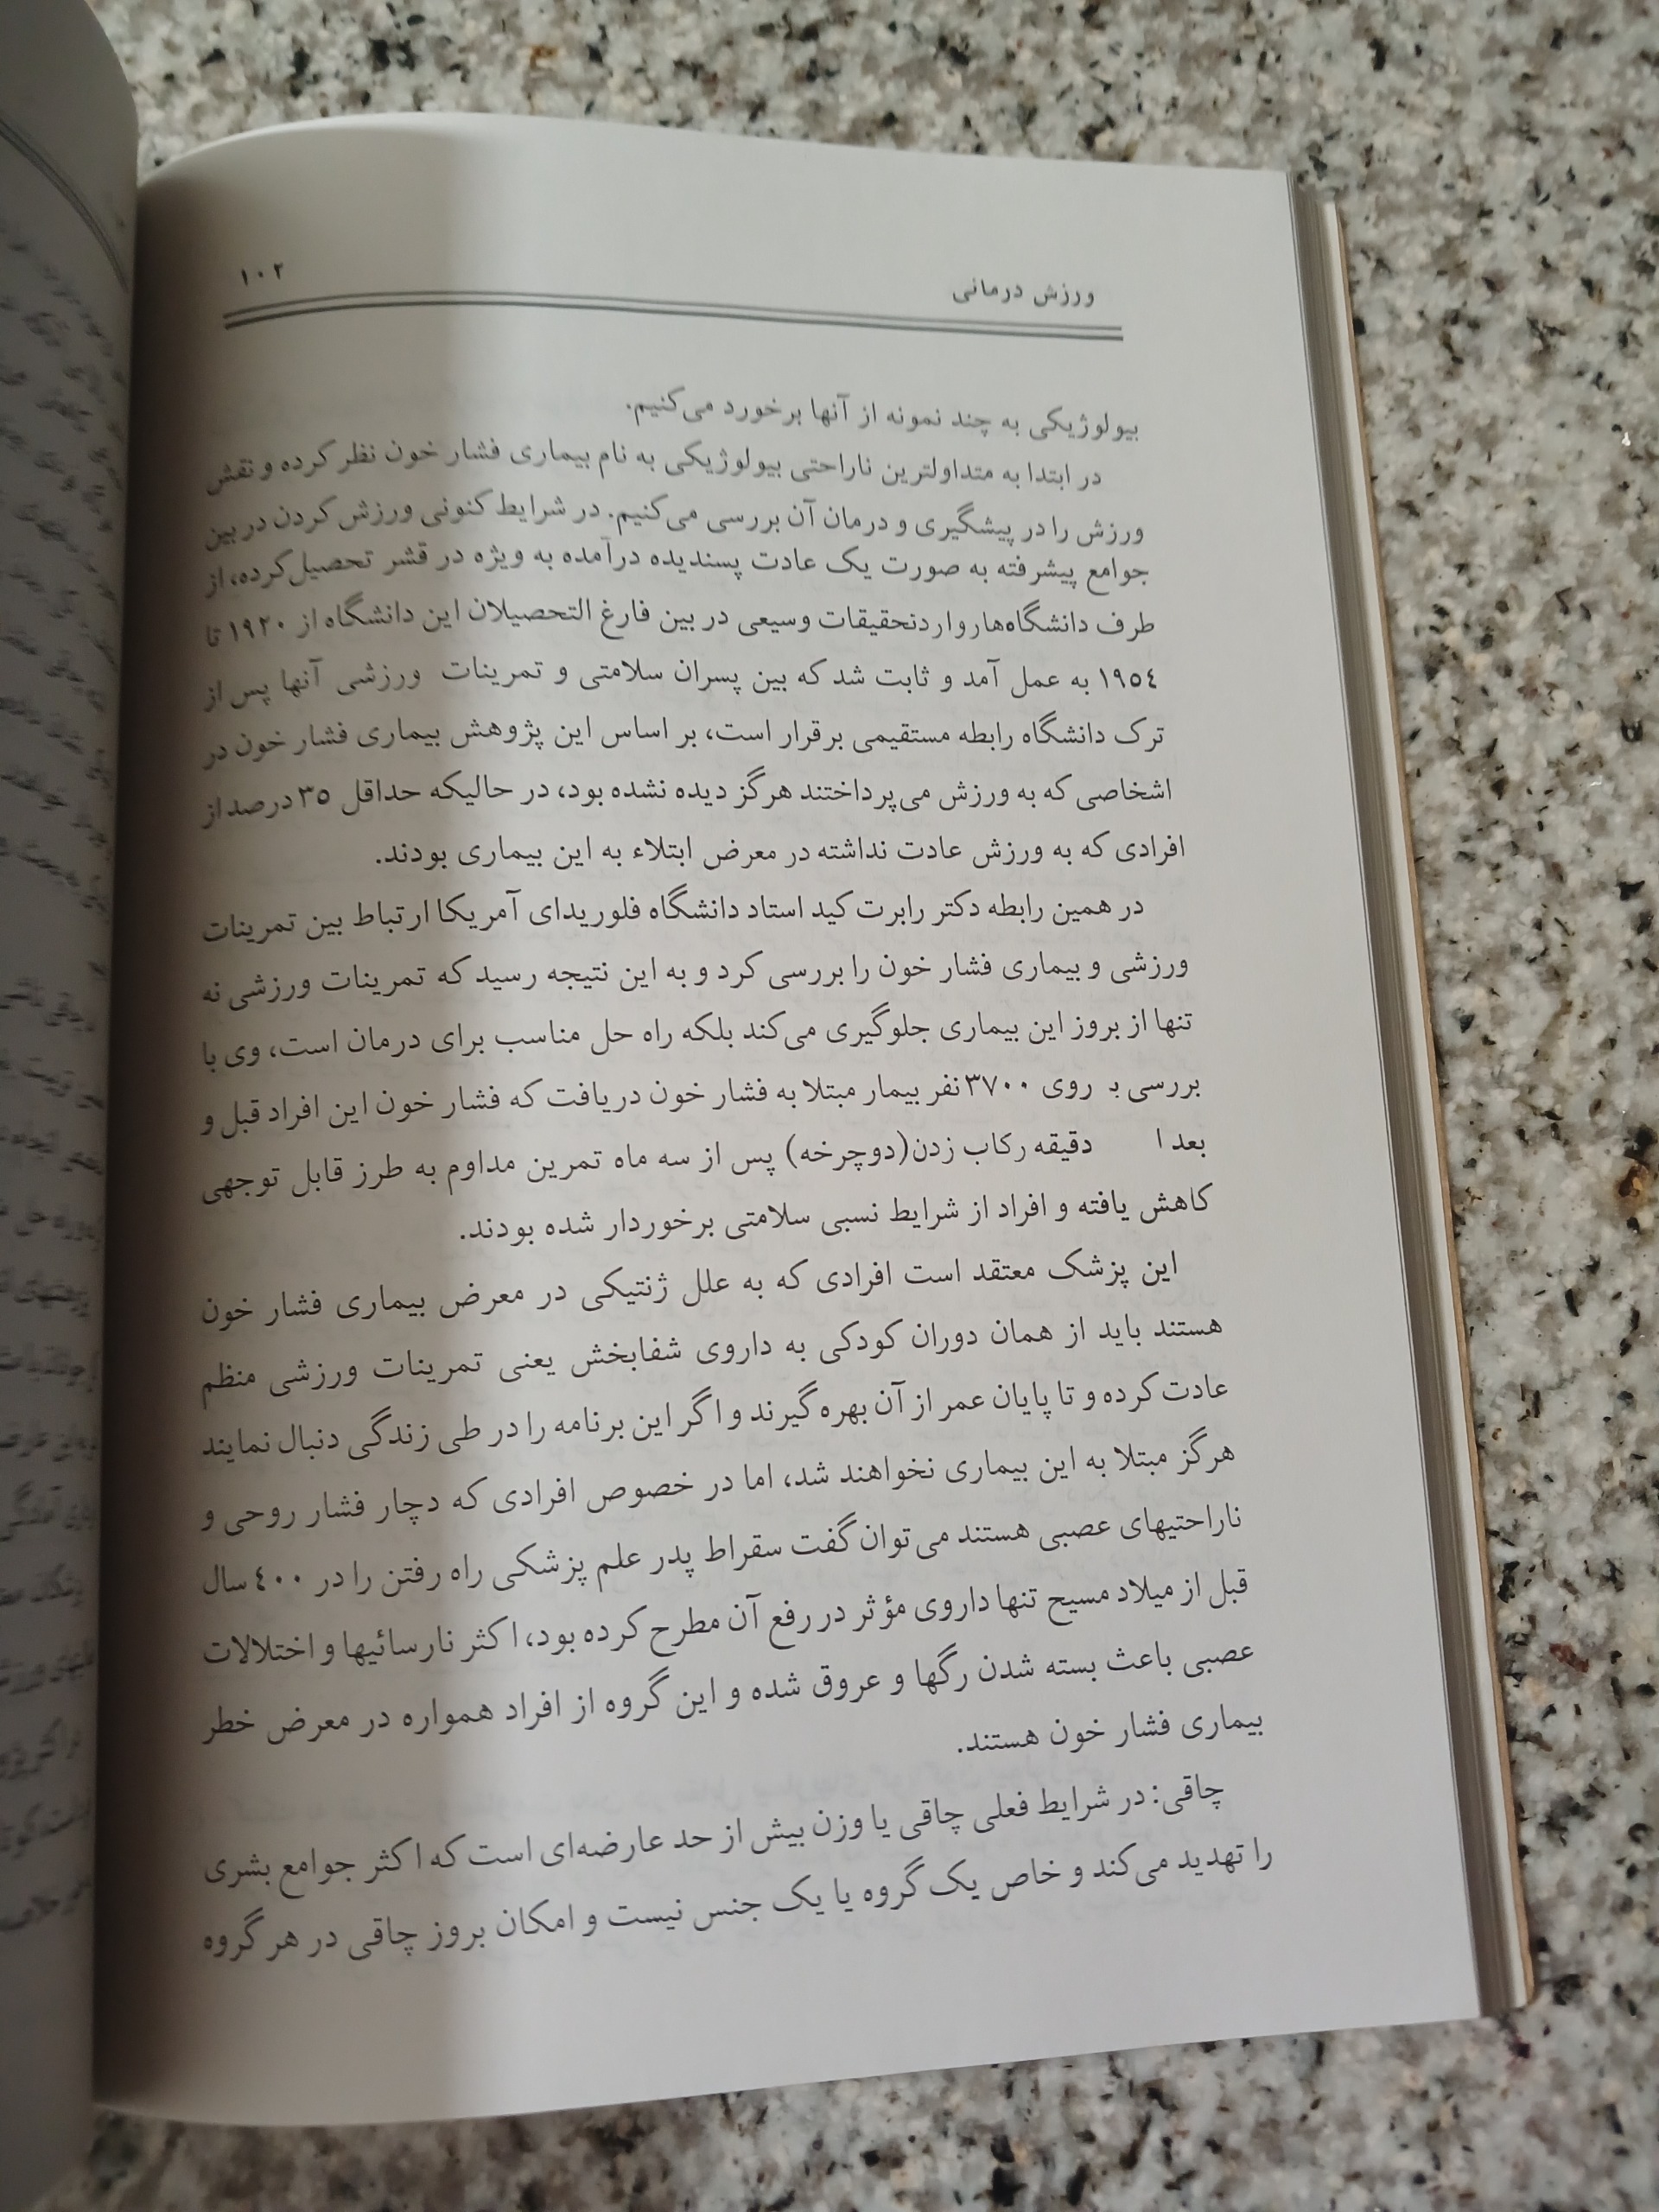 ورزش درمانی
۱۰۲
بیولوژیکی به چند نمونه از آنها برخورد می‌کنیم.
در ابتدا به متداولترین ناراحتی بیولوژیکی به نام بیماری فشار خون نظر کرده و نقش
ورزش را در پیشگیری و درمان آن بررسی می‌کنیم. در شرایط کنونی ورزش کردن در بین
جوامع پیشرفته به صورت یک عادت پسندیده درآمده به ویژه در قشر تحصیل‌کرده، از
طرف دانشگاه‌هاروارد تحقیقات وسیعی در بین فارغ التحصیلان این دانشگاه از ۱۹۲۰ تا
۱۹۵٤ به عمل آمد و ثابت شد که بین پسران سلامتی و تمرینات ورزشی آنها پس از
ترک دانشگاه رابطه مستقیمی برقرار است، بر اساس این پژوهش بیماری فشار خون در
اشخاصی که به ورزش می‌پرداختند هرگز دیده نشده بود، در حالیکه حداقل ۳۵ درصد از
افرادی که به ورزش عادت نداشته در معرض ابتلاء به این بیماری بودند.
در همین رابطه دکتر رابرت کید استاد دانشگاه فلوریدای آمریکا ارتباط بین تمرینات
ورزشی و بیماری فشار خون را بررسی کرد و به این نتیجه رسید که تمرینات ورزشی نه
تنها از بروز این بیماری جلوگیری می‌کند بلکه راه حل مناسب برای درمان است، وی با
بررسی ب روی ۳۷۰۰ نفر بیمار مبتلا به فشار خون دریافت که فشار خون این افراد قبل و
بعد ا دقیقه رکاب زدن(دوچرخه) پس از سه ماه تمرین مداوم به طرز قابل توجهی
کاهش یافته و افراد از شرایط نسبی سلامتی برخوردار شده بودند.
این پزشک معتقد است افرادی که به علل ژنتیکی در معرض بیماری فشار خون
هستند باید از همان دوران کودکی به داروی شفابخش یعنی تمرینات ورزشی منظم
عادت کرده و تا پایان عمر از آن بهره گیرند و اگر این برنامه را در طی زندگی دنبال نمایند
هرگز مبتلا به این بیماری نخواهند شد، اما در خصوص افرادی که دچار فشار روحی و
ناراحتیهای عصبی هستند می‌توان گفت سقراط پدر علم پزشکی راه رفتن را در ٤۰۰ سال
قبل از میلاد مسیح تنها داروی مؤثر در رفع آن مطرح کرده بود، اکثر نارسائیها و اختلالات
عصبی باعث بسته شدن رگها و عروق شده و این گروه از افراد همواره در معرض خطر
بیماری فشار خون هستند.
چاقی: در شرایط فعلی چاقی یا وزن بیش از حد عارضه‌ای است که اکثر جوامع بشری
را تهدید می‌کند و خاص یک گروه یا یک جنس نیست و امکان بروز چاقی در هر گروه